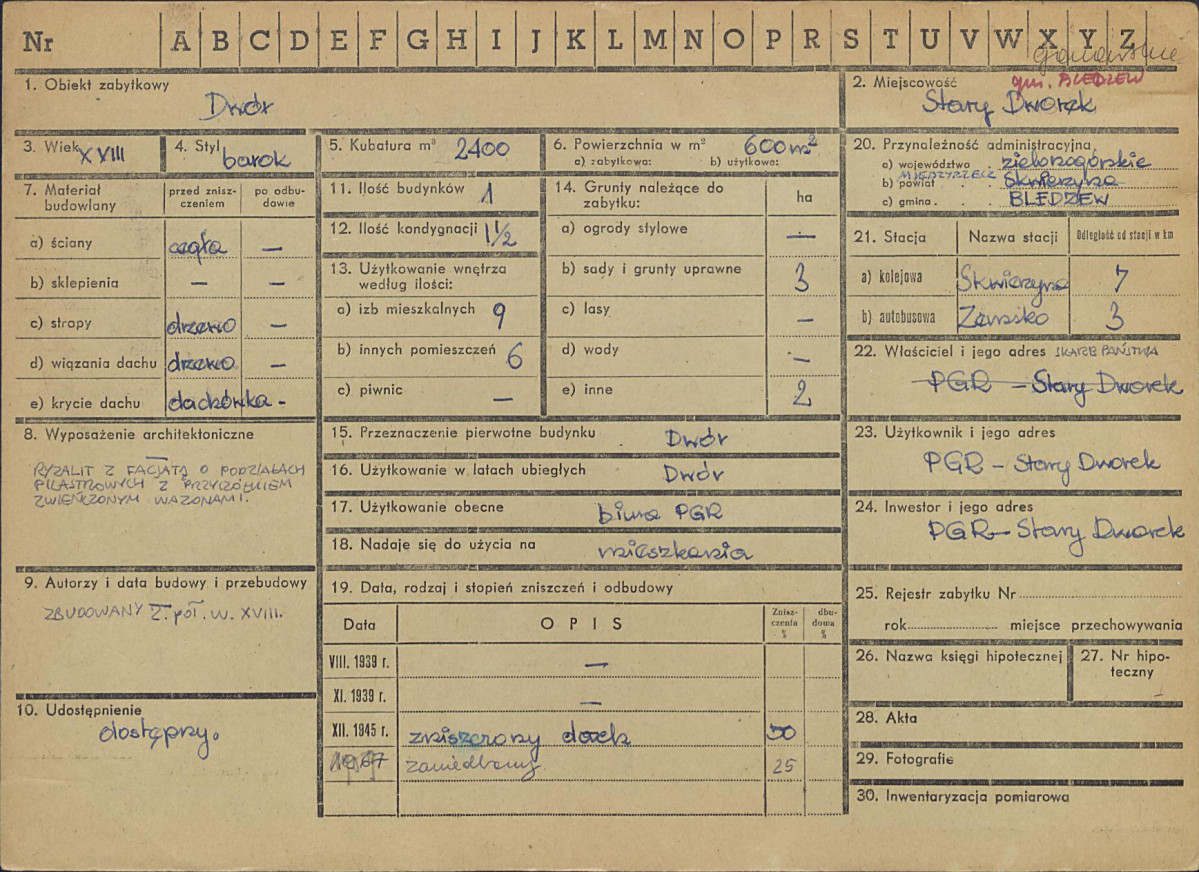 Nr A B C D E F G H I J K L M N O P R S T U V W X Y Z
1. Obiekt zabytkowy
Dwór
2. Miejscowość
gm. BLEDZEW
Stary Dworek
3. Wiek XVIII
4. Styl barok
5. Kubatura m³ 2400
6. Powierzchnia w m² 600 m²
a) zabytkowa: b) użytkowa:
7. Materiał budowlany
przed zniszczeniem
po odbudowie
a) ściany cegła —
b) sklepienia — —
c) stropy drzewo —
d) wiązania dachu drzewo —
e) krycie dachu dachówka -
8. Wyposażenie architektoniczne
RYZALIT Z FACJATĄ O PODZIAŁACH
PILASTROWYCH Z PRZYCZÓŁKIEM
ZWIEŃCZONYM WAZONAMI.
9. Autorzy i data budowy i przebudowy
ZBUDOWANY 2. poł. w. XVIII.
10. Udostępnienie
dostępny.
11. Ilość budynków 1
12. Ilość kondygnacji 1 1/2
13. Użytkowanie wnętrza
według ilości:
a) izb mieszkalnych 9
b) innych pomieszczeń 6
c) piwnic —
14. Grunty należące do
zabytku:
ha
a) ogrody stylowe —
b) sady i grunty uprawne 3
c) lasy —
d) wody —
e) inne 2
15. Przeznaczenie pierwotne budynku Dwór
16. Użytkowanie w latach ubiegłych Dwór
17. Użytkowanie obecne biura PGR
18. Nadaje się do użycia na mieszkania
19. Data, rodzaj i stopień zniszczeń i odbudowy
Data OPIS Zniszczenia % dbudowa %
VIII. 1939 r. —
XI. 1939 r. —
XII. 1945 r. zniszczony dach 50
1967 zaniedbany 25
20. Przynależność administracyjna
a) województwo . zielonogórskie
MIĘDZYRZECZ
b) powiat . . Skwierzyna
c) gmina . . BLEDZEW
21. Stacja Nazwa stacji Odległość od stacji w km
a) kolejowa Skwierzyna 7
b) autobusowa Zemsko 3
22. Właściciel i jego adres SKARB PAŃSTWA
PGR — Stary Dworek
23. Użytkownik i jego adres
PGR — Stary Dworek
24. Inwestor i jego adres
PGR — Stary Dworek
25. Rejestr zabytku Nr
rok miejsce przechowywania
26. Nazwa księgi hipotecznej
27. Nr hipoteczny
28. Akta
29. Fotografie
30. Inwentaryzacja pomiarowa